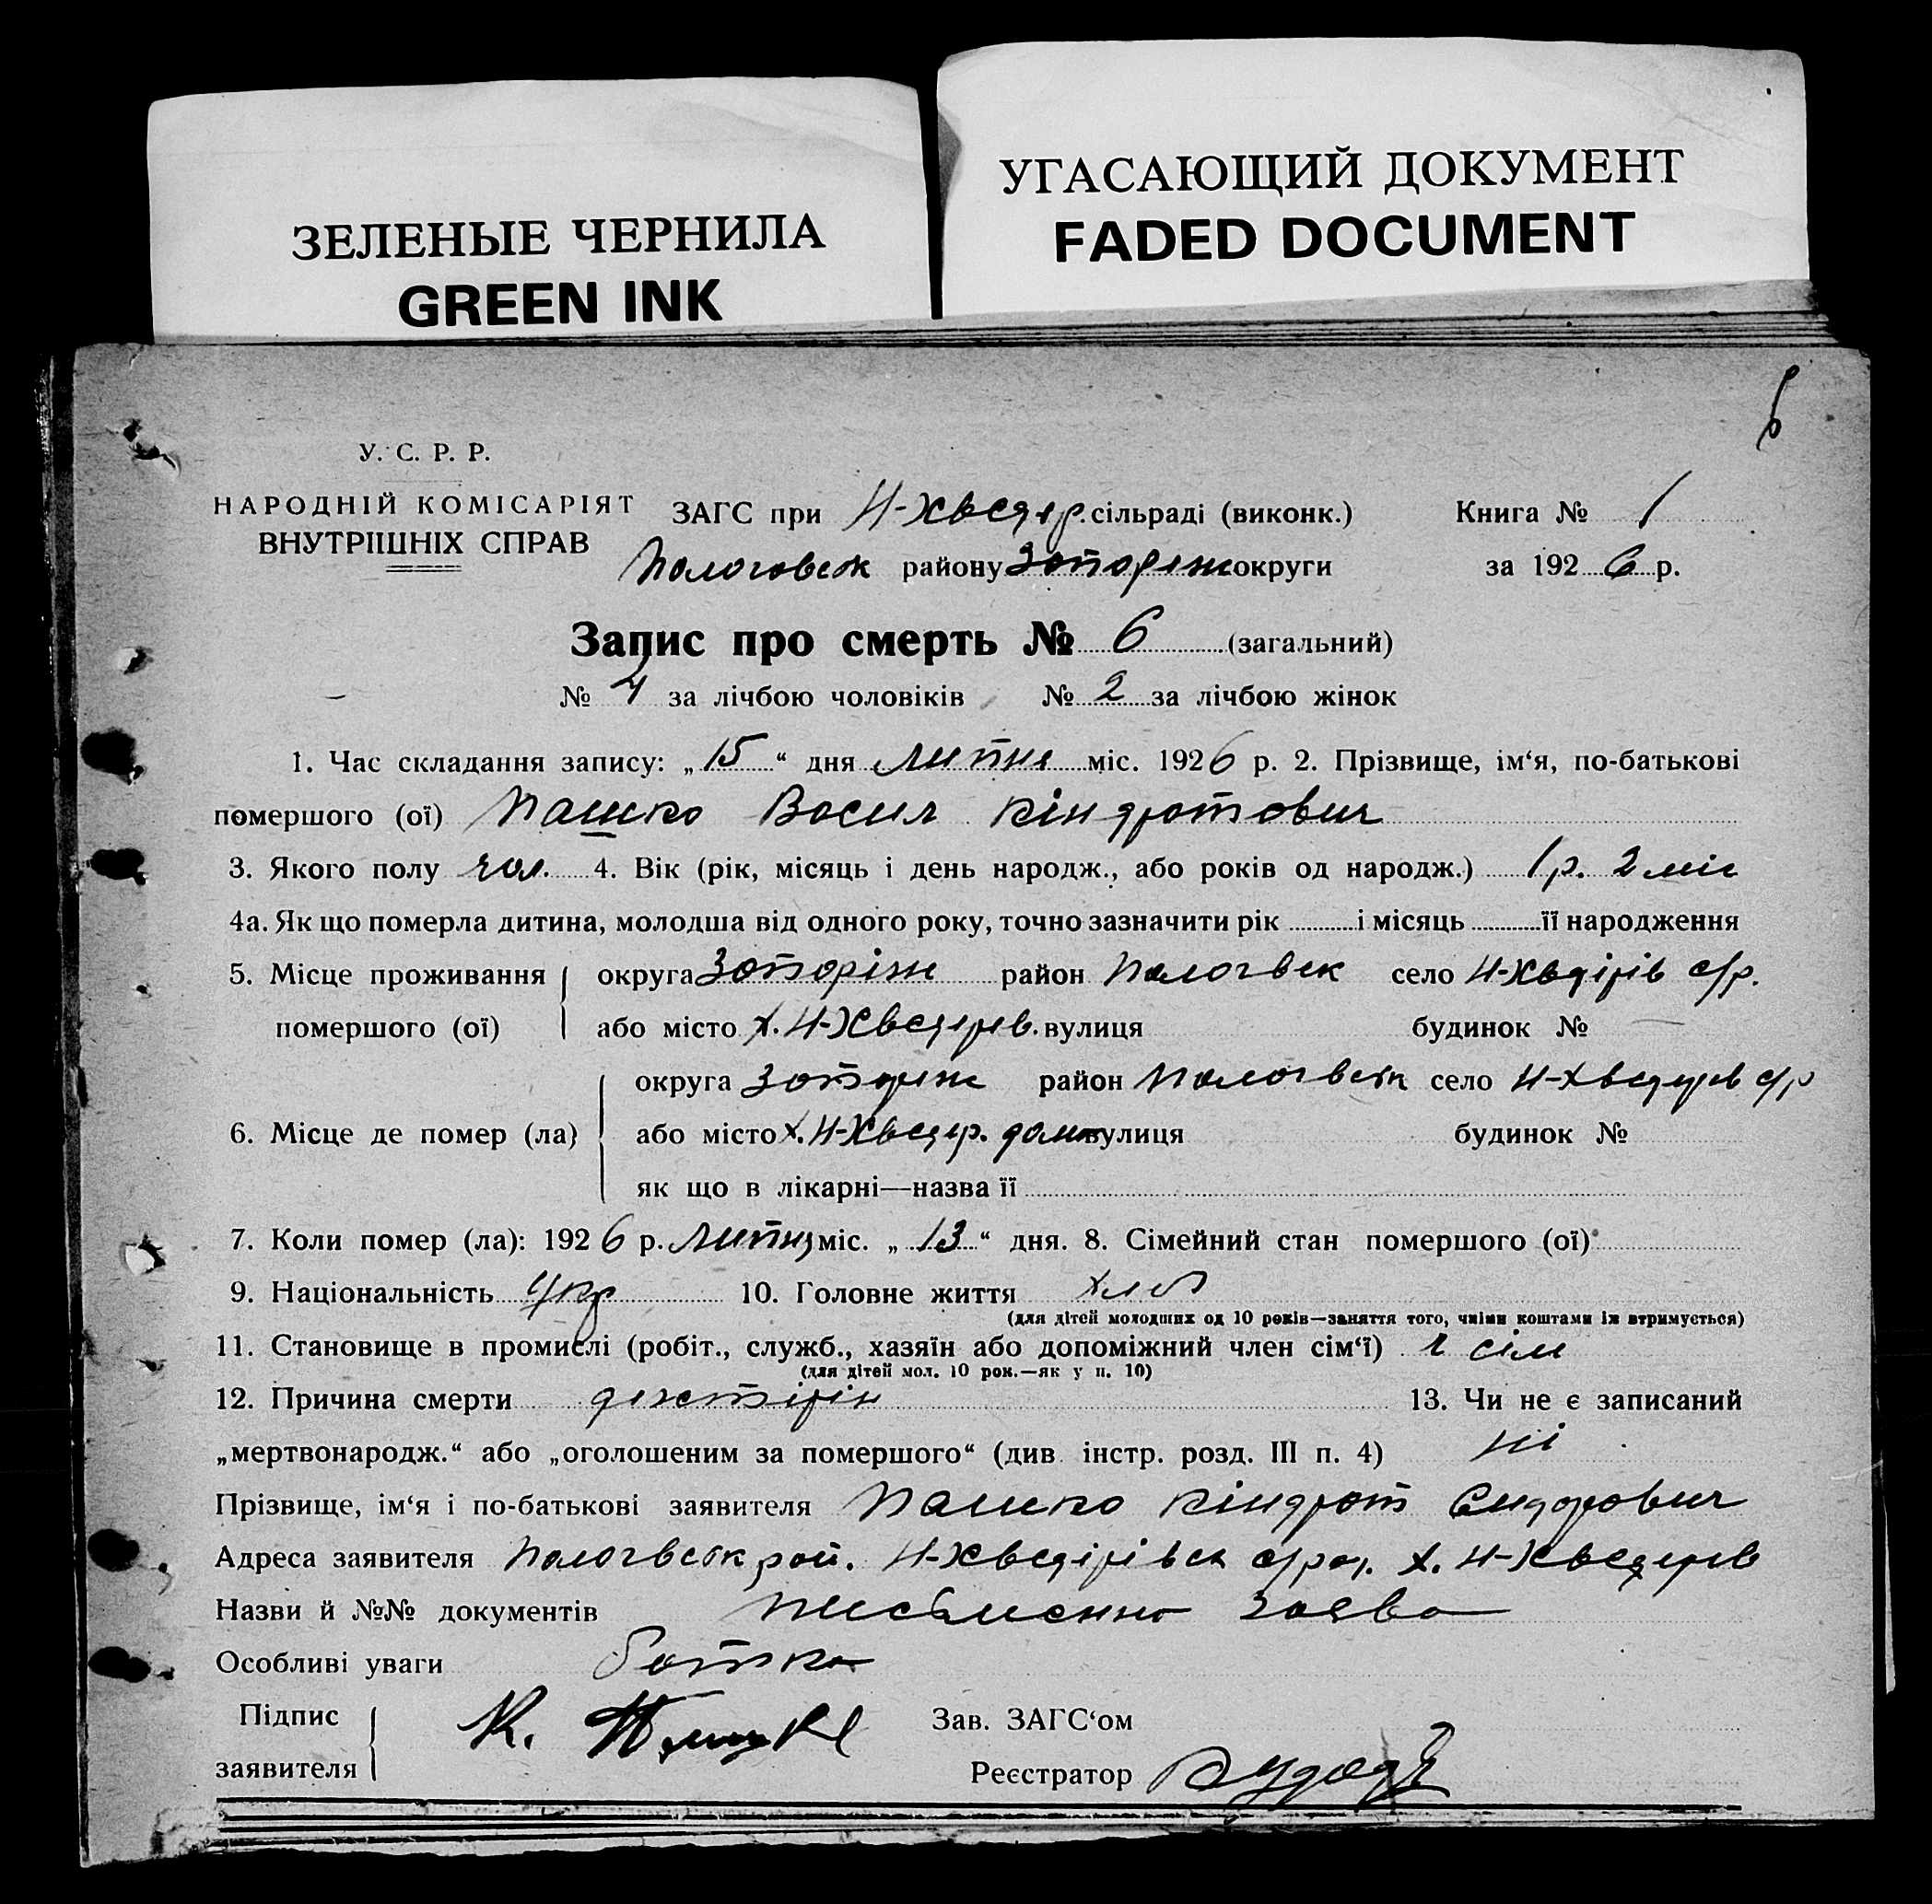 ЗЕЛЕНЫЕ ЧЕРНИЛА
GREEN INK
УГАСАЮЩИЙ ДОКУМЕНТ
FADED DOCUMENT
6
У. С. Р. Р.
НАРОДНІЙ КОМІСАРІЯТ
ВНУТРІШНІХ СПРАВ
ЗАГС при Н-Хведер. сільраді (виконк.) Книга № 1
Пологовськ району Запоріж округи за 1926 р.
Запис про смерть № 6 (загальний)
№ 4 за лічбою чоловіків № 2 за лічбою жінок
1. Час складання запису: „15“ дня липня міс. 1926 р. 2. Прізвище, ім‘я, по-батькові
помершого (ої) Пашко Васил Кіндратович
3. Якого полу чол. 4. Вік (рік, місяць і день народж., або років од народж.) 1 р. 2 міс
4а. Як що померла дитина, молодша від одного року, точно зазначити рік і місяць її народження
5. Місце проживання округа Запоріж район Пологвск село Н-Хведірів с/р.
помершого (ої) або місто х. Н-Хведерев. вулиця будинок № —
округа Запориж район Пологвськ село Н-Хведерів с/р
6. Місце де помер (ла) або місто х. Н-Хведер. дома вулиця будинок №
як що в лікарні—назва її
7. Коли помер (ла): 1926 р. липня міс. „13“ дня. 8. Сімейний стан помершого (ої)
9. Національність Укр 10. Головне життя хліб
(для дітей молодших од 10 років—заняття того, чиїми коштами їх втримується)
11. Становище в промислі (робіт., служб., хазяїн або допоміжний член сім‘ї) ч сім
(для дітей мол. 10 рок.—як у п. 10)
12. Причина смерти 13. Чи не є записаний
„мертвонародж.“ або „оголошеним за помершого“ (див. інстр. розд. III п. 4) ні
Прізвище, ім‘я і по-батькові заявителя Пашко Кіндрат Сидорович
Адреса заявителя Пологвськ рай. Н-Хведірівск с/рад. х. Н-Хведерев
Назви й №№ документів письменна заява
Особливі уваги батька
Підпис К. Пашко Зав. ЗАГС‘ом
заявителя Реєстратор